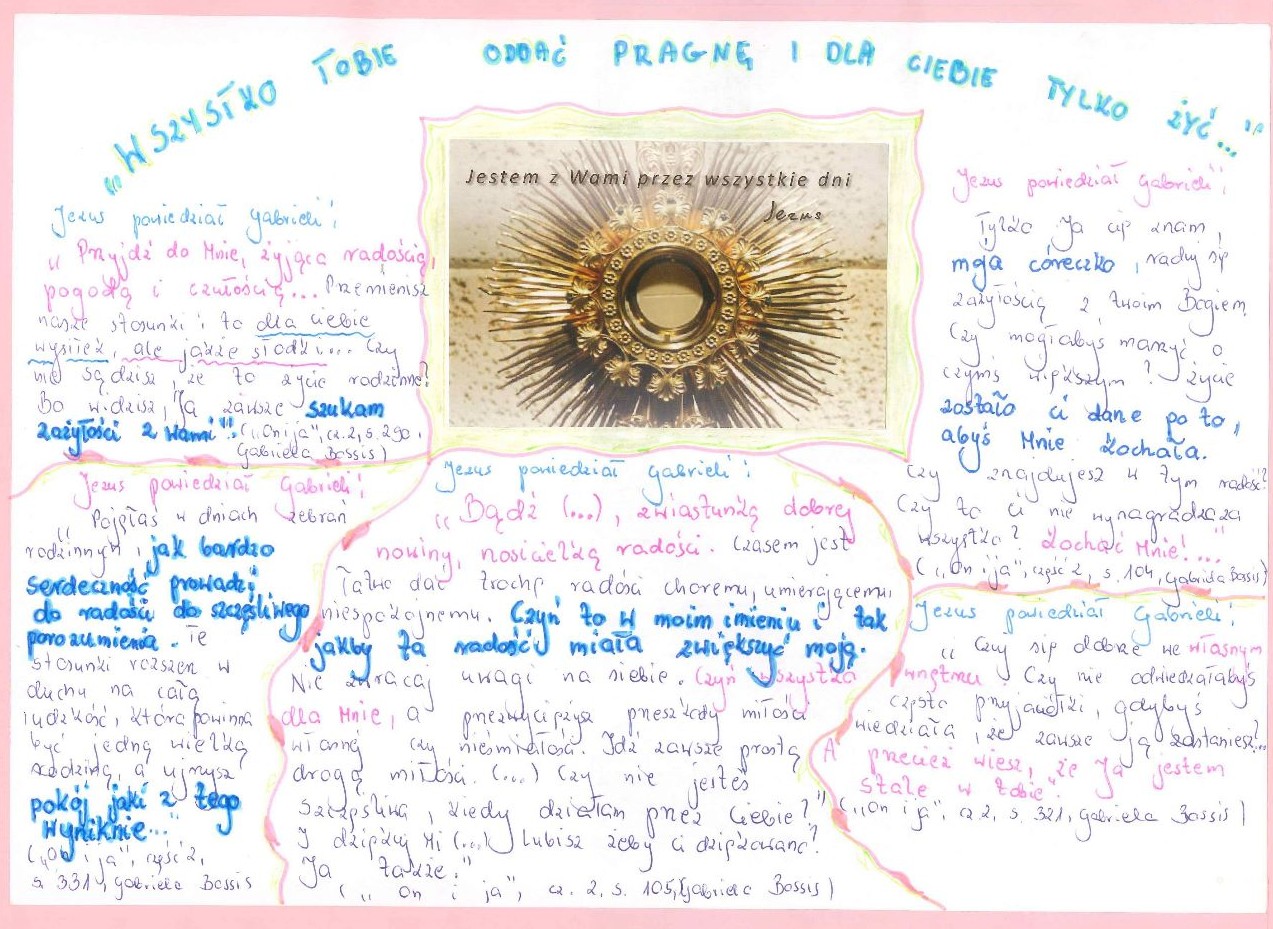 „WSZYSTKO TOBIE ODDAĆ PRAGNĘ I DLA CIEBIE TYLKO ŻYĆ..."
Jestem z Wami przez wszystkie dni
Jezus
Jezus powiedział Gabrieli:
„Przyjdź do Mnie, żyjąca radością,
pogodą i czułością... Przemienisz
nasze stosunki: to dla ciebie
wysiłek, ale jakże słodki... Czy
nie sądzisz, że to życie rodzinne?
Bo widzisz, Ja zawsze szukam
zażyłości z wami". („On i ja", cz. 2, s. 290,
Gabriela Bossis)
Jezus powiedział Gabrieli:
„Pojęłaś w dniach zebrań
rodzinnych, jak bardzo
serdeczność prowadzi
do radości do szczęśliwego
porozumienia. Te
stosunki rozszerz w
duchu na całą
ludzkość, która powinna
być jedną wielką
rodziną, a ujrzysz
pokój jaki z tego
wyniknie..."
(„On i ja", część 2,
s. 331, Gabriela Bossis
Jezus powiedział Gabrieli:
„Bądź (...), zwiastunką dobrej
nowiny, nosicielką radości. Czasem jest
łatwo dać trochę radości choremu, umierającemu,
niespokojnemu. Czyń to w moim imieniu i tak
jakby ta radość miała zwiększyć moją.
Nie zwracaj uwagi na siebie. Czyń wszystko
dla Mnie, a przezwyciężysz przeszkody miłości
własnej czy nieśmiałości. Idź zawsze prostą
drogą miłości. (...) Czy nie jesteś
szczęśliwa, kiedy działam przez Ciebie?"
I dziękuj Mi (...) Lubisz żeby ci dziękowano?
Ja także."
(„On i ja", cz. 2, s. 105, Gabriela Bossis)
Jezus powiedział Gabrieli:
Tylko Ja cię znam,
moja córeczko, raduj się
zażyłością z twoim Bogiem.
Czy mogłabyś marzyć o
czymś większym? Życie
zostało ci dane po to,
abyś Mnie kochała.
Czy znajdujesz w tym radość?
Czy to ci nie wynagradza
wszystko? Kochać Mnie!..."
(„On i ja", część 2, s. 104, Gabriela Bossis)
Jezus powiedział Gabrieli:
„Czuj się dobrze we własnym
wnętrzu. Czy nie odwiedzałabyś
często przyjaciółki, gdybyś
wiedziała, że zawsze ją zastaniesz?...
A przecież wiesz, że Ja jestem
stale w tobie".
(„On i ja", cz 2, s. 321, Gabriela Bossis)